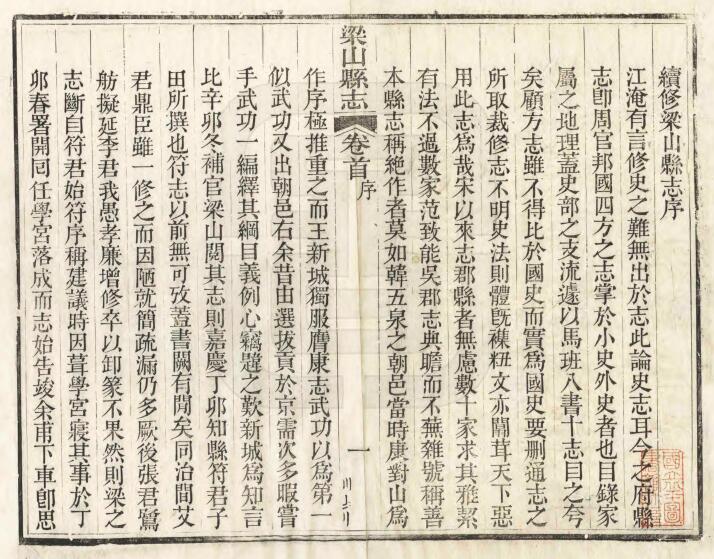 續修梁山縣志序
江淹有言修史之難無出於志此論史志耳今之府縣
志卽周官邦國四方之志掌於小史外史者也目錄家
屬之地理蓋史部之支流遽以馬班八書十志目之夸
矣顧方志雖不得比於國史而實爲國史要刪通志之
所取裁修志不明史法則體旣糅粈文亦闒茸天下惡
用此志爲哉宋以來志郡縣者無慮數十家求其雅絜
有法不過數家范致能吳郡志典贍而不蕪雜號稱善
本縣志稱絶作者莫如韓五泉之朝邑當時康對山爲
梁山縣志 卷首 序 一
作序極推重之而王新城獨服膺康志武功以爲第一
似武功又出朝邑右余昔由選拔貢於京需次多暇嘗
手武功一編繹其綱目義例心竊韙之歎新城爲知言
比辛卯冬補官梁山閱其志則嘉慶丁卯知縣符君子
田所撰也符志以前無可攷蓋書闕有閒矣同治間艾
君鼎臣雖一修之而因陋就簡疏漏仍多厥後張君鷺
舫擬延李君我愚孝廉增修卒以卸篆不果然則梁之
志斷自符君始符序稱建議時因葺學宮寢其事於丁
卯春署開同任學宮落成而志始告竣余甫下車卽思